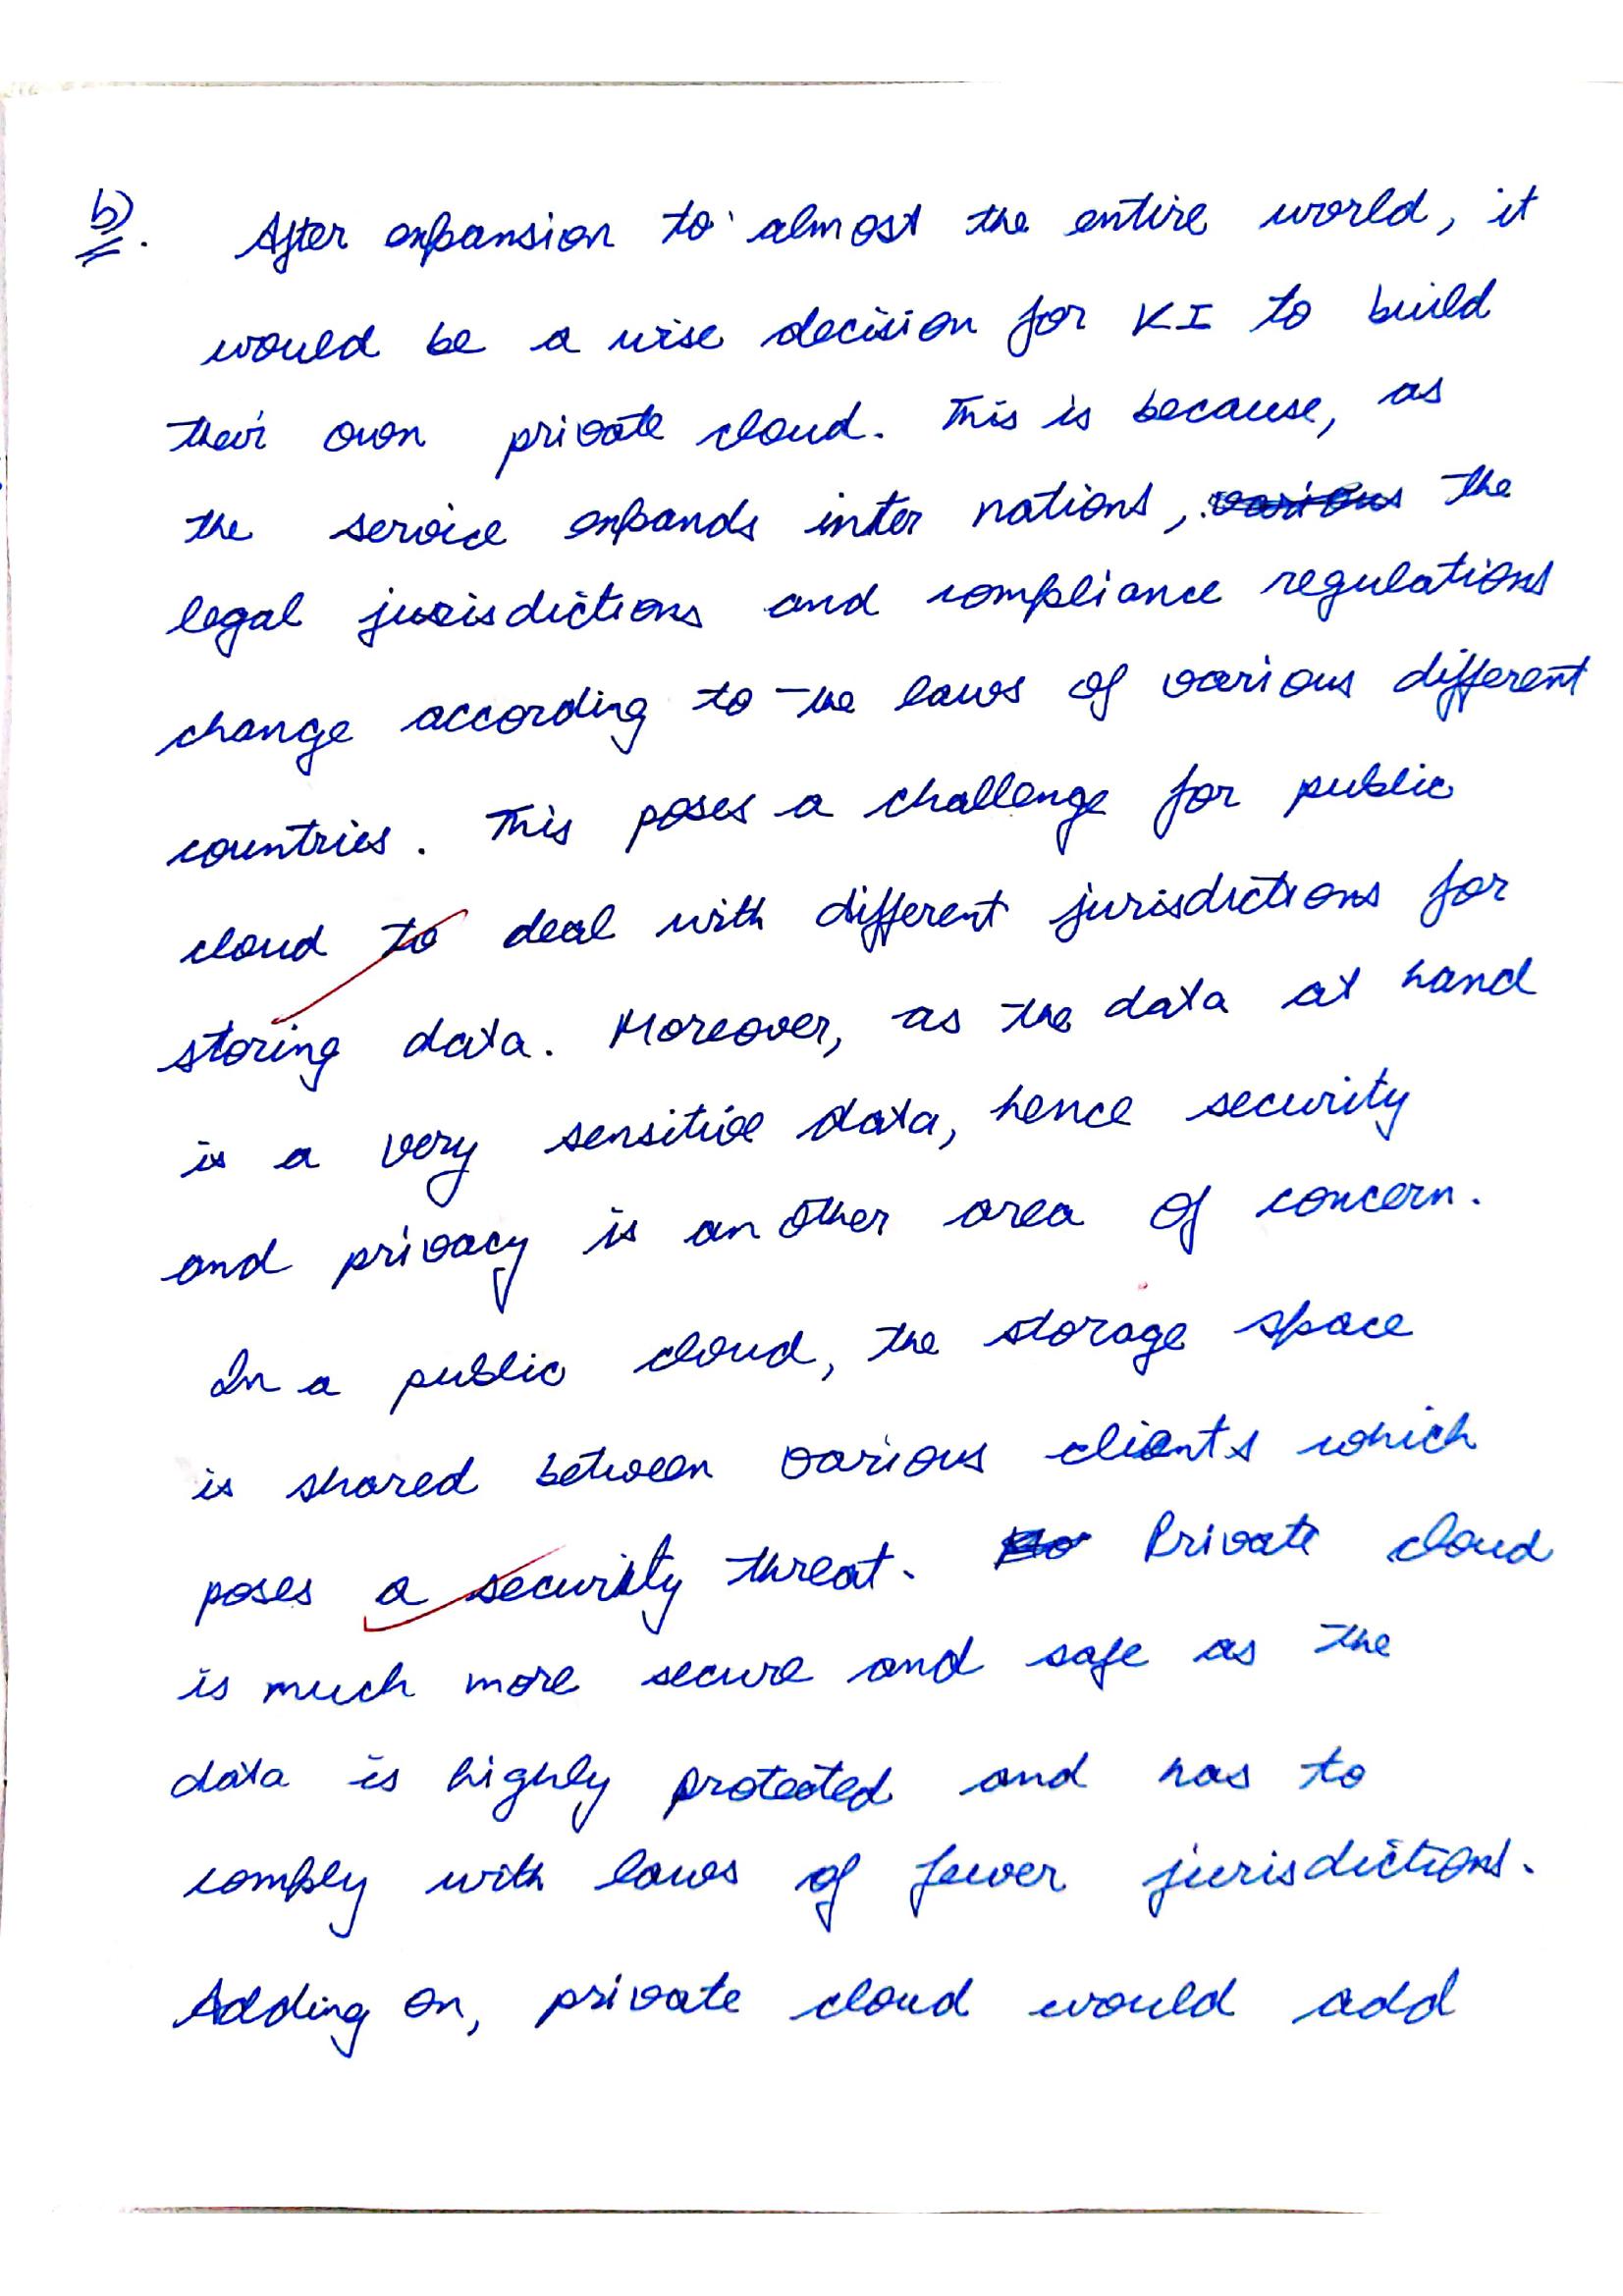 b). After expansion to almost the entire world, it
would be a wise decision for KI to build
their own private cloud. This is because, as
the service expands inter nations, various the
legal jurisdictions and compliance regulations
change according to the laws of various different
countries. This poses a challenge for public
cloud to deal with different jurisdictions for
storing data. Moreover, as the data at hand
is a very sensitive data, hence security
and privacy is another area of concern.
In a public cloud, the storage space
is shared between various clients which
poses a security threat. Private cloud
is much more secure and safe as the
data is highly protected and has to
comply with laws of fewer jurisdictions.
Adding on, private cloud would add